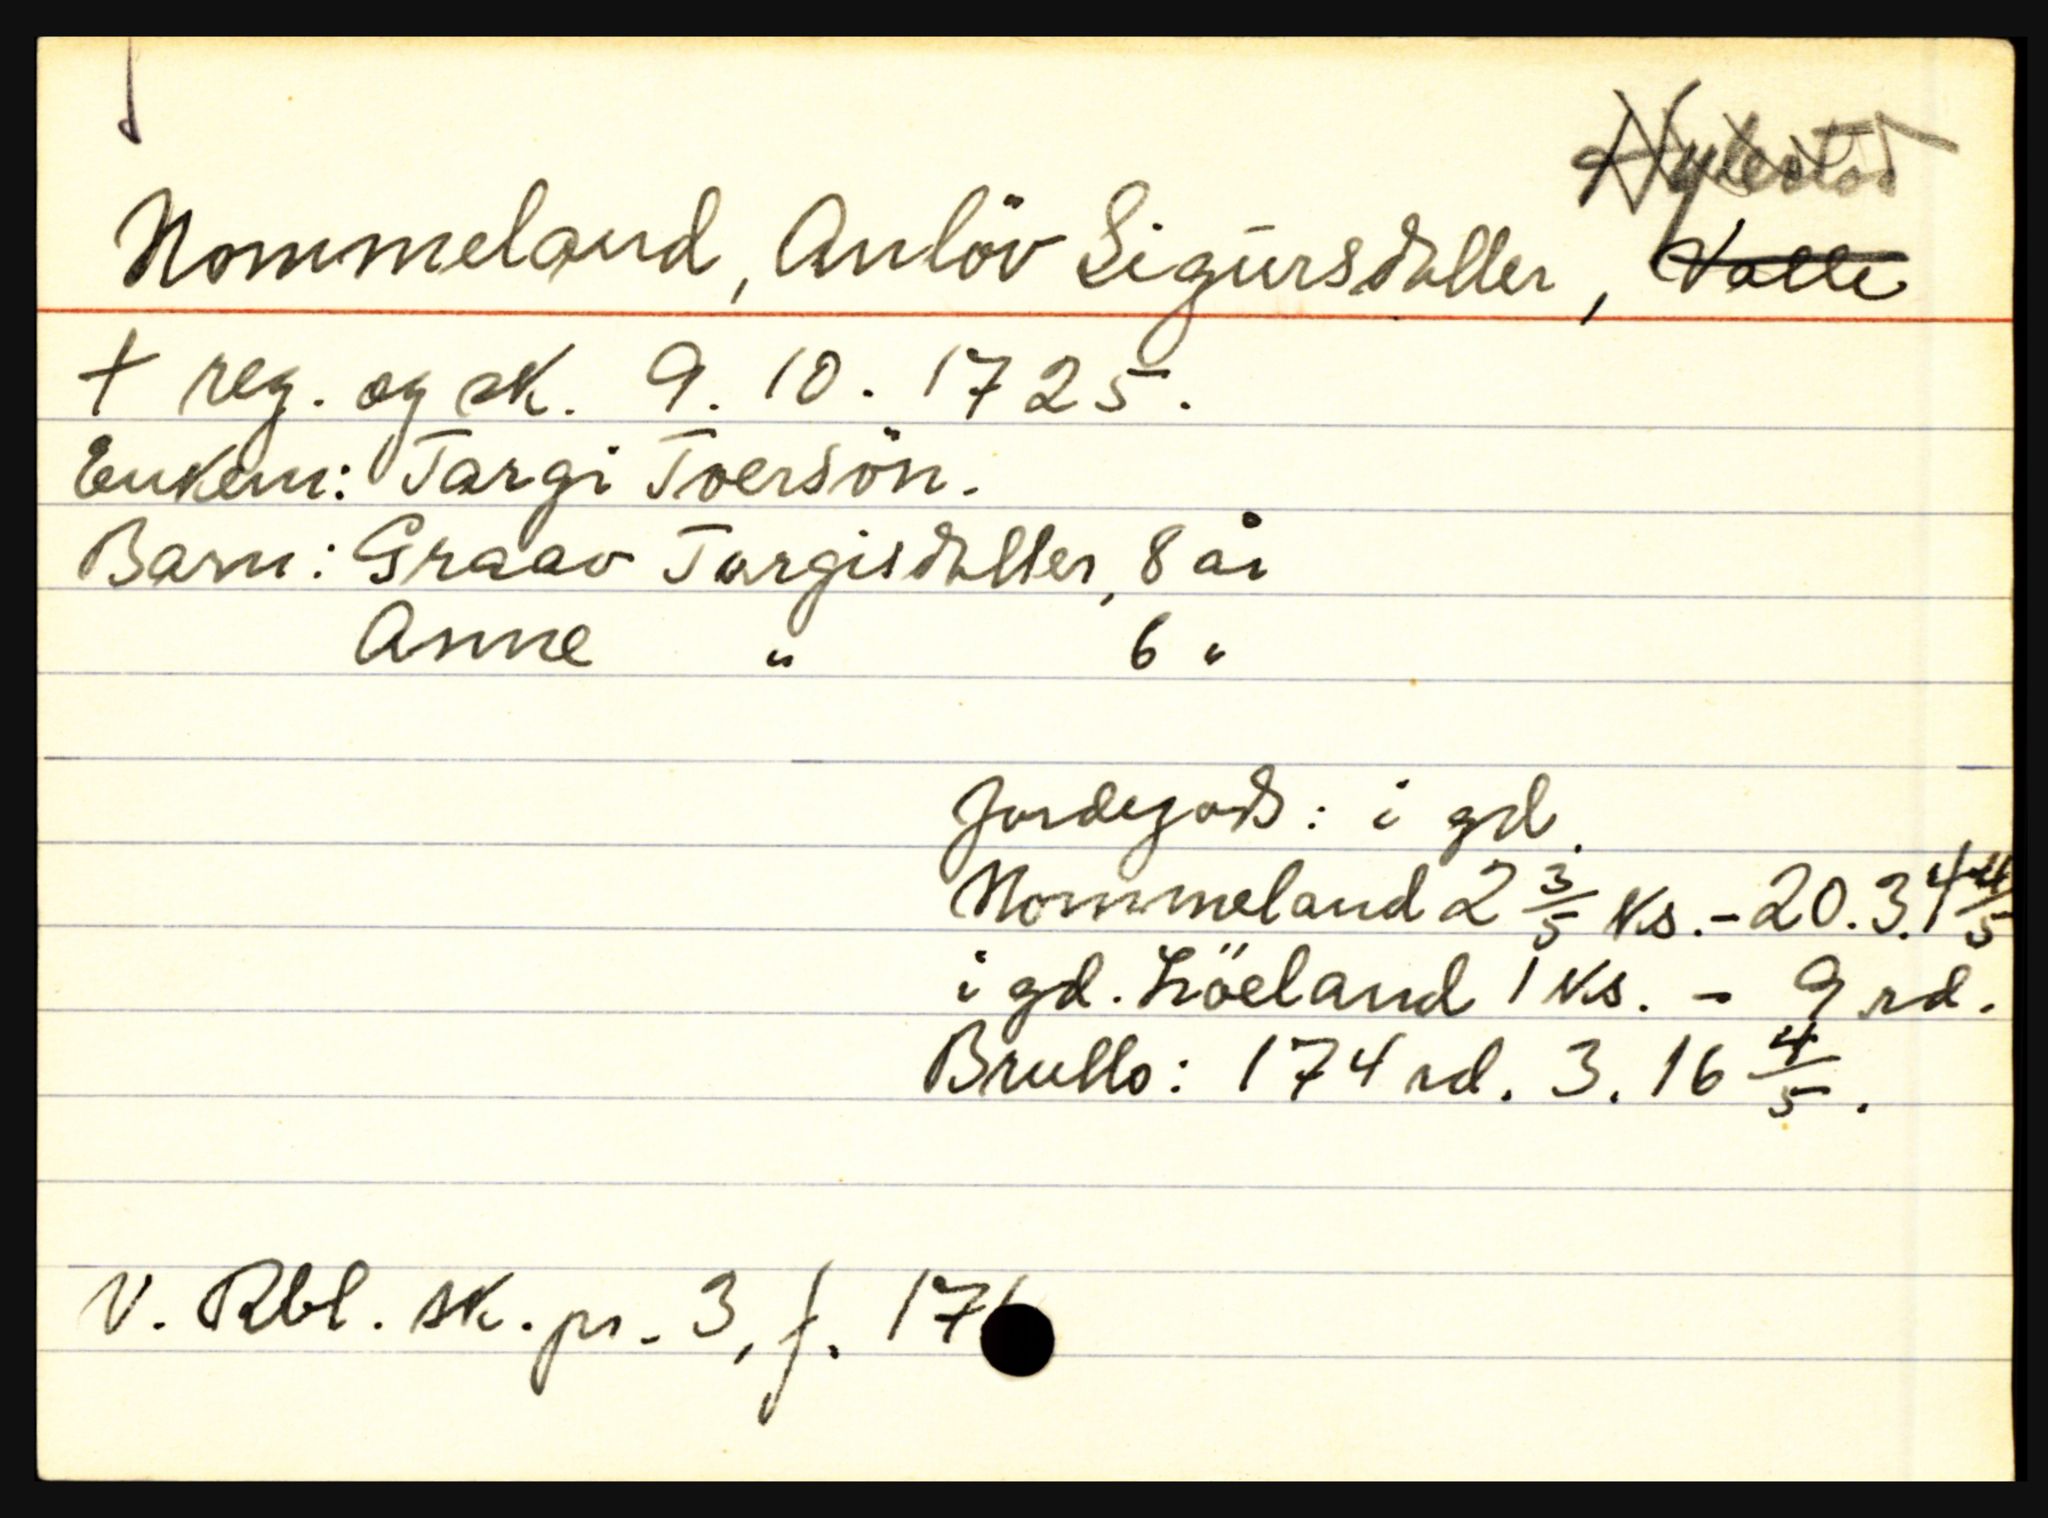 Hylestad
Nommeland, Anlöv Sigursdatter, Valle
† reg. og sk. 9. 10. 1725.
Enkem: Targi Toersön.
Barn: Graav Targisdatter, 8 år
Anne " 6 "
Jordegods: i gd.
Nommeland 2 3/5 ks. - 20.3.4 4/5
i gd. Löeland 1 ks. - 9 rd.
Brutto: 174 rd. 3. 16 4/5.
V. Rbl. sk. pr. 3, f. 176